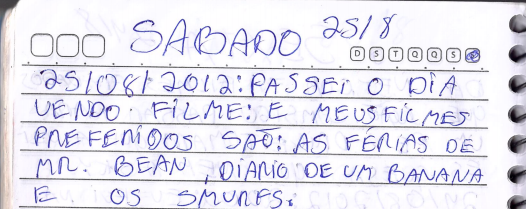 SABADO 25/8
D S T Q Q S S
25/08/2012: PASSEI O DIA
VENDO FILME: E MEUS FILMES
PREFERIDOS SÃO: AS FÉRIAS DE
MR. BEAN, DIARIO DE UM BANANA
E OS SMURFS.